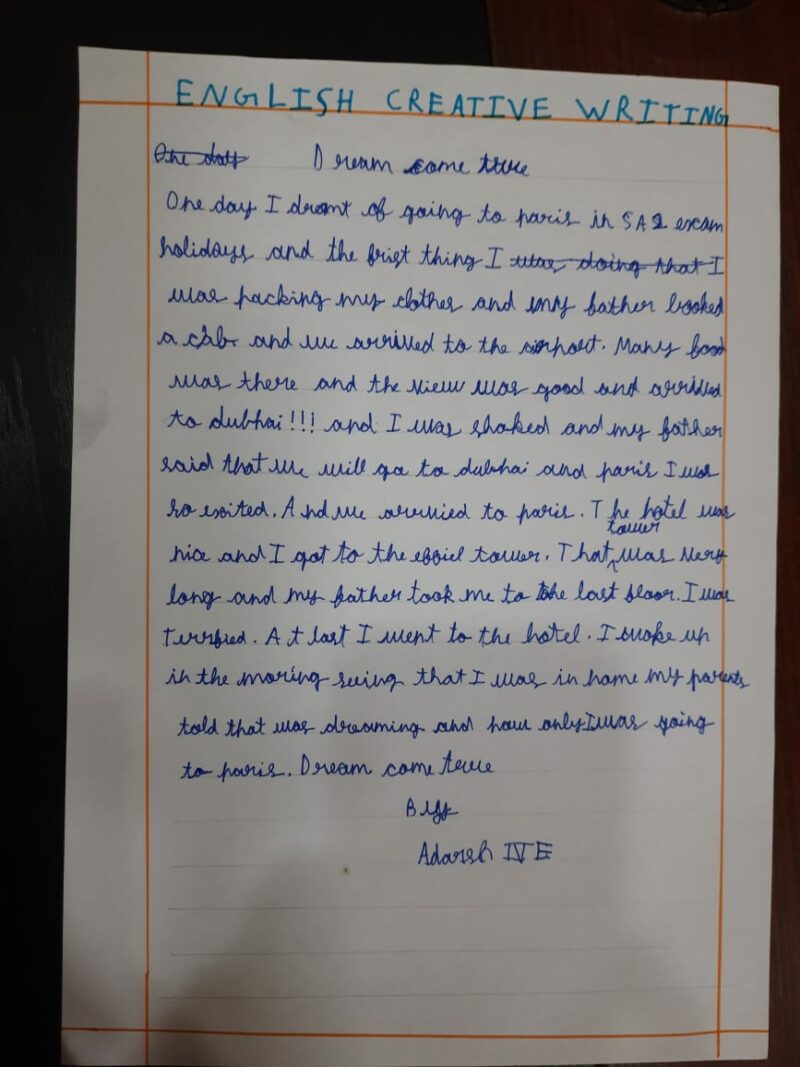 ENGLISH CREATIVE WRITING
Dream come true
One day I dremt of going to paris in SA2 exam
holidays and the frist thing I was doing that I
was packing my clothes and my father booked
a cab and we arrived to the airport. Many food
was there and the view was good and arrived
to dubhai!!! and I was shoked and my father
said that we will go to dubhai and paris I was
so exited. And we arrived to paris. The hotel was
nice and I got to the effiel tower. That tower was very
long and my father took me to the last floor. I was
terrfied. At last I went to the hotel. I woke up
in the moring seeing that I was in home my parents
told that was dreaming and now only I was going
to paris. Dream come true
By
Adarsh IV E